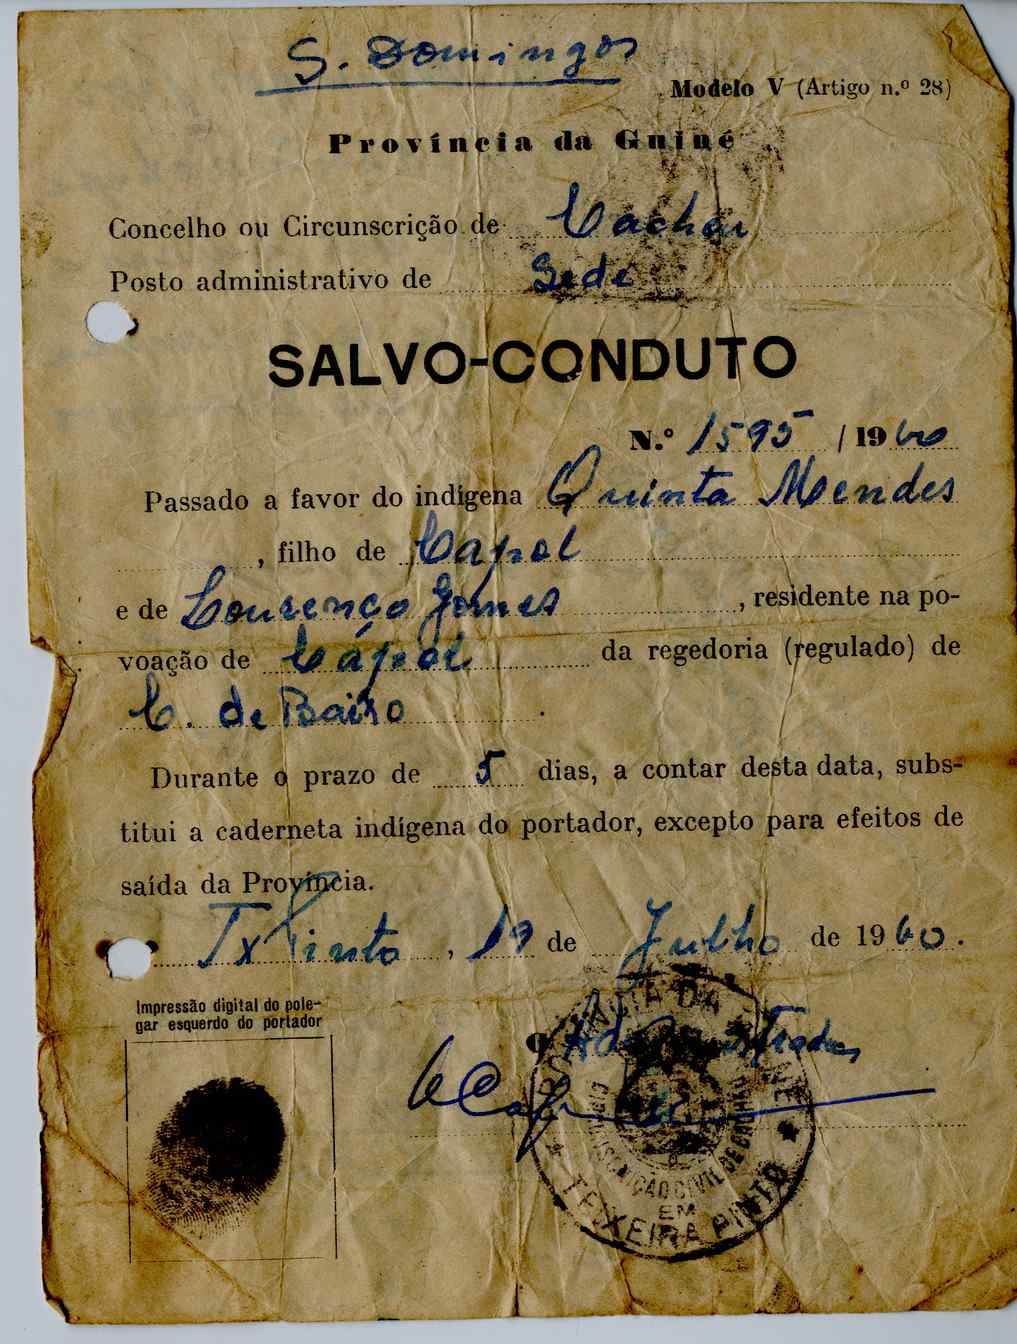 S. Domingos
Modelo V (Artigo n.º 28)
Província da Guiné
Concelho ou Circunscrição de Cacheu
Posto administrativo de Sede
SALVO-CONDUTO
N.º 1595 / 1960
Passado a favor do indígena Quinta Mendes
, filho de Capol
e de Lourenço Gomes, residente na po-
voação de Cápol da regedoria (regulado) de
C. de Baixo.
Durante o prazo de 5 dias, a contar desta data, subs-
titui a caderneta indígena do portador, excepto para efeitos de
saída da Província.
Tx Pinto, 19 de Julho de 1960.
Impressão digital do pole-
gar esquerdo do portador
O Administrador
CIVIL DE
EM
TEIXEIRA PINTO